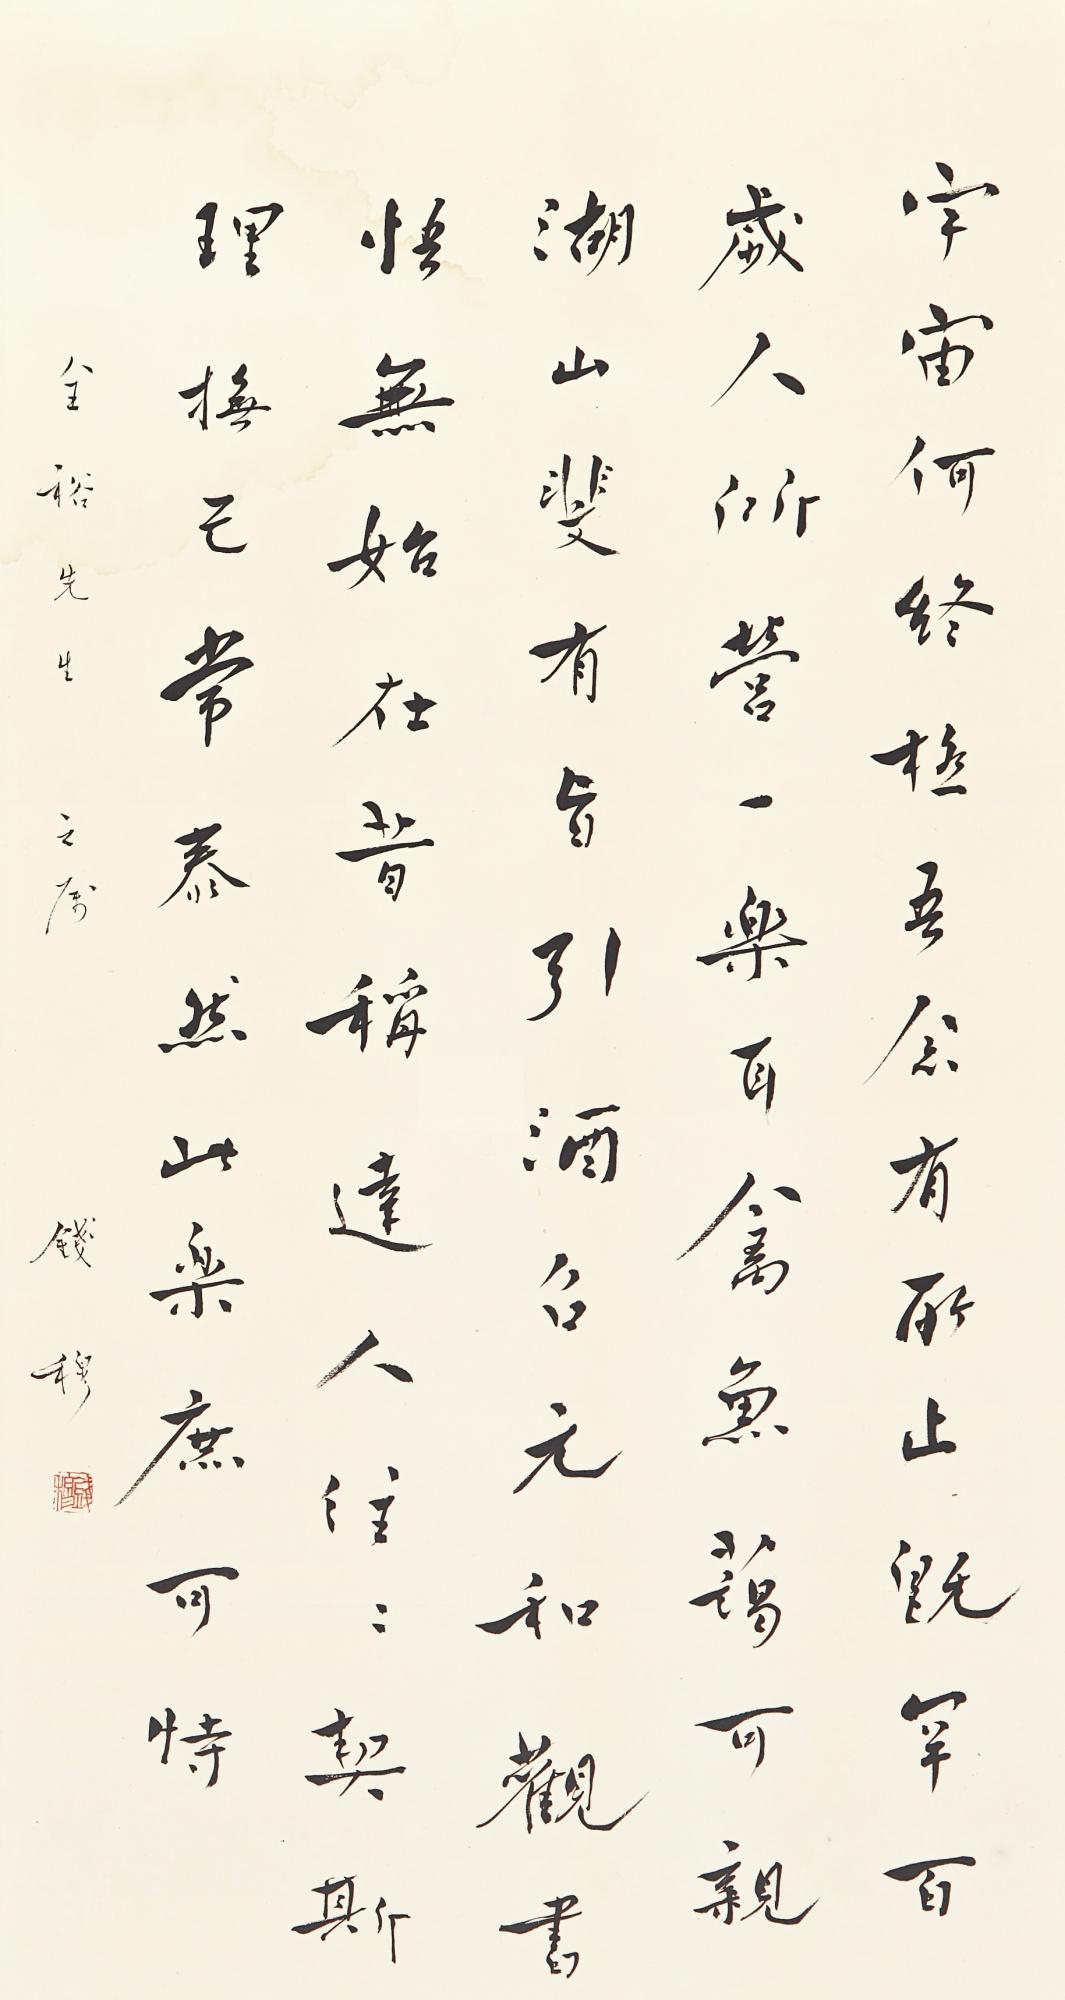 宇宙何終極吾念有所止既罕百
歲人所營一樂耳禽魚藹可親
湖山斐有旨引酒召元和觀書
悟無始在昔稱達人往〻契斯
理撫己常泰然此樂庶可恃
金裕先生之屬 錢穆
錢穆